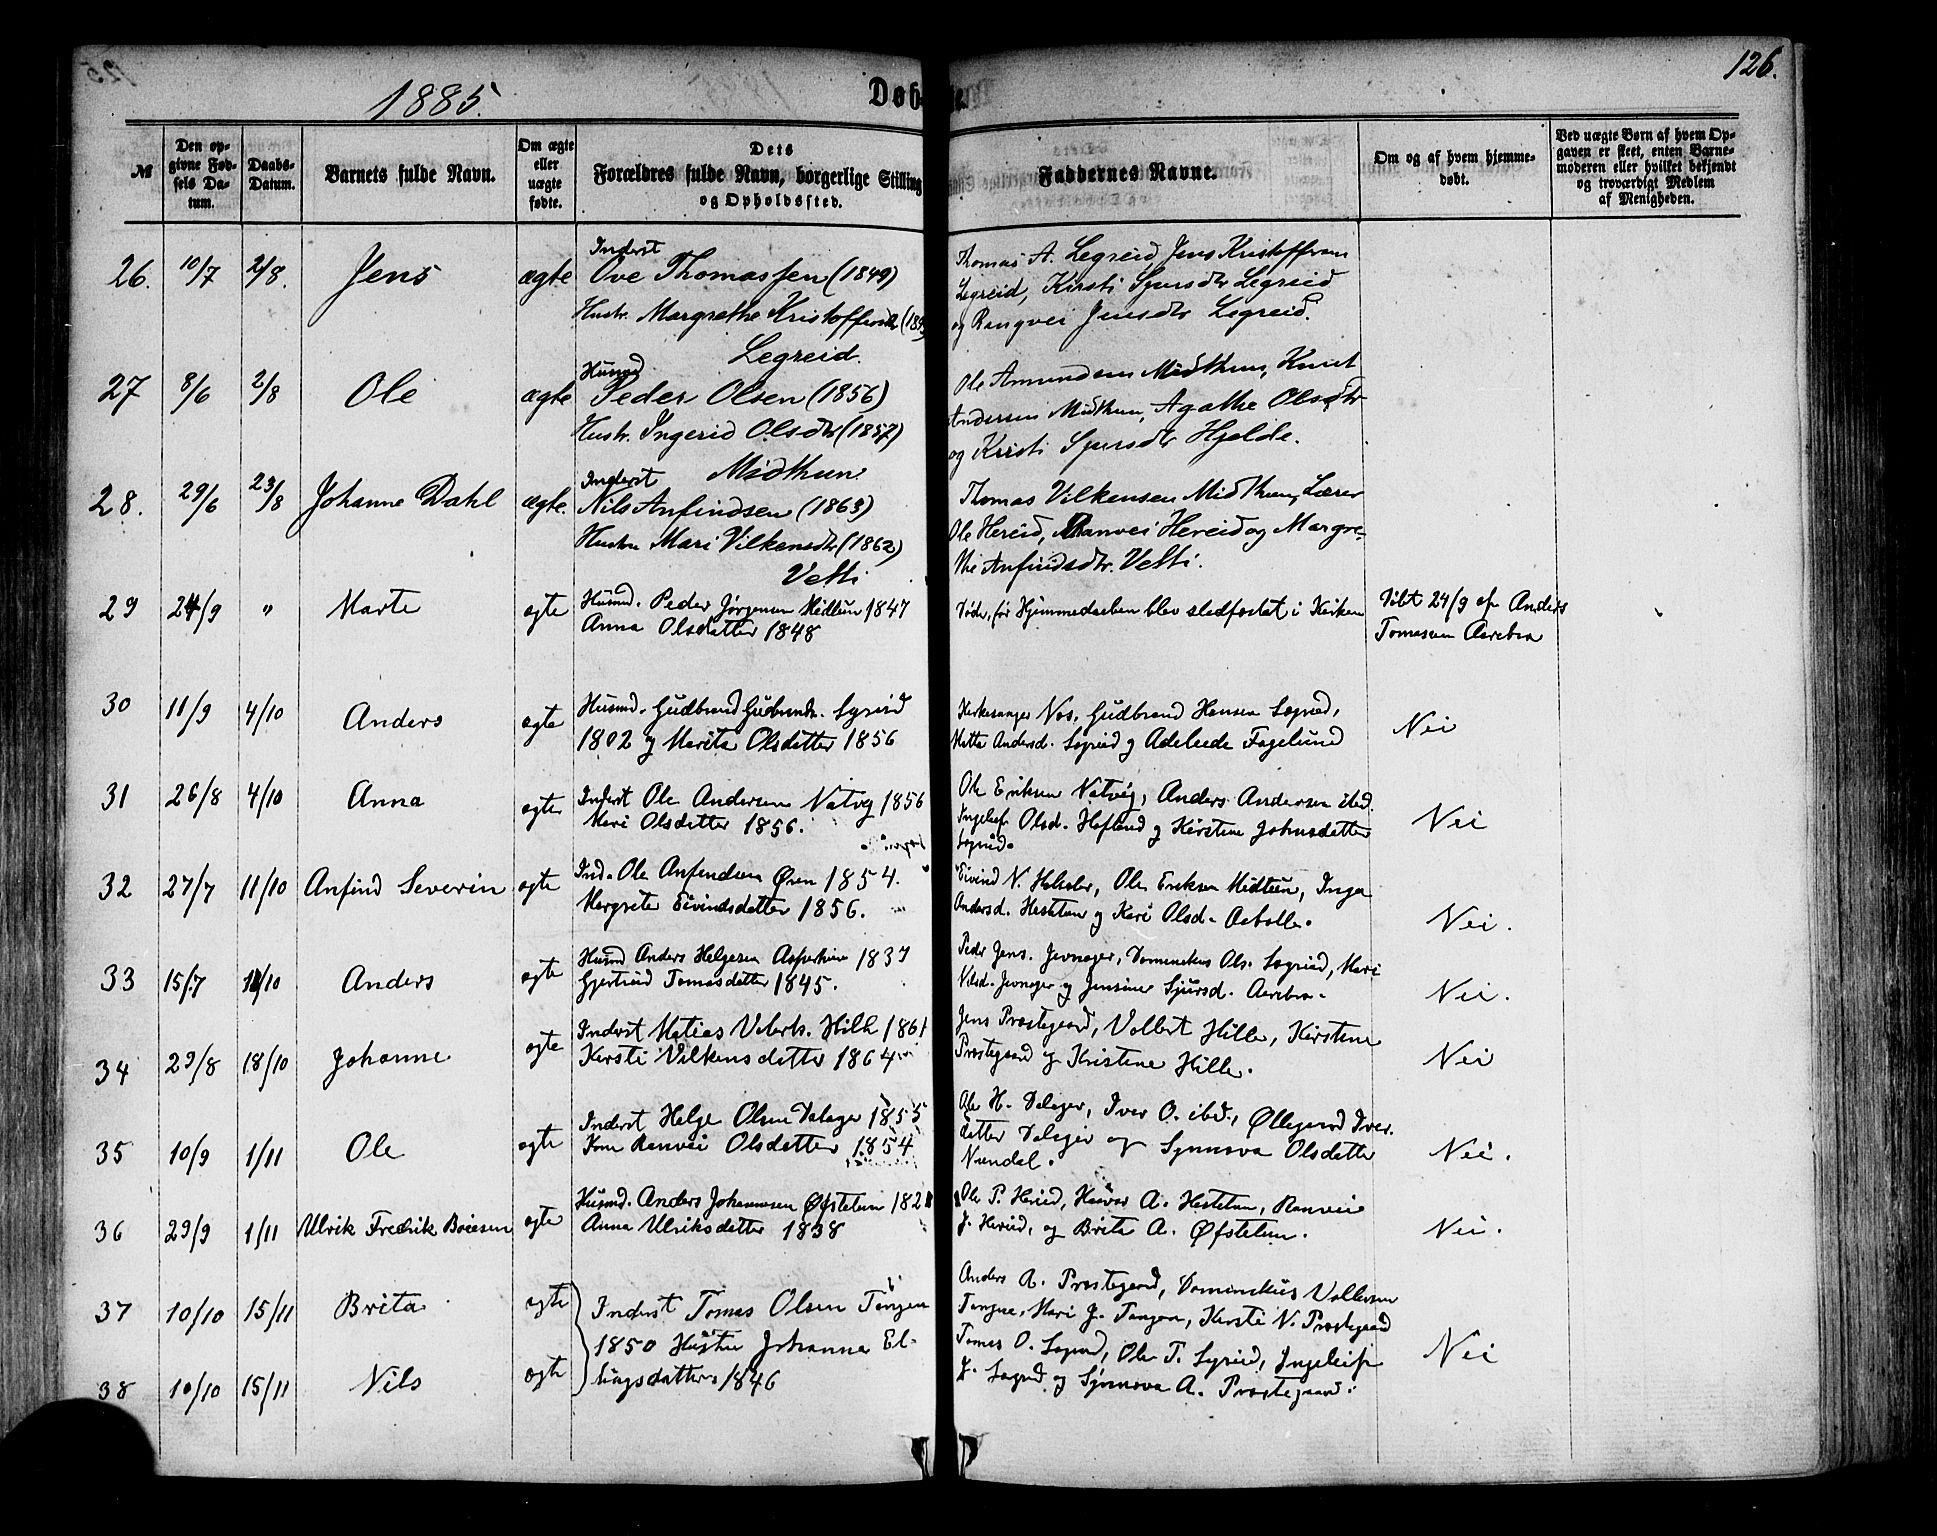 126.
1885.
Døb
№
Den op-
givne Fød-
sels Da-
tum.
Daabs-
Datum.
Barnets fulde Navn.
Om ægte
eller
uægte
fødte.
Dets
Forældres fulde Navn, borgerlige Stilling
og Opholdssted.
Faddernes Navne.
Om og af hvem hjemme-
døbt.
Ved uægte Børn af hvem Op-
gaven er skeet, enten Barne-
moderen eller hvilket bekjendt
og troværdigt Medlem
af Menigheden.
26. 10/7 2/8. Jens ægte Inderst
Ove Thomassen (1849)
Hustr. Margrethe Kristoffersdtr
Legreid.
Thomas A. Legreid, Jens Kristoffersen
Legreid, Kirsti Sjursdtr Legreid
og Rangvei Jensdtr Legreid.
27 8/6 2/8 Ole ægte Husmd
Peder Olsen (1856)
Hustr. Ingerid Olsdtr (1857)
Midthun
Ole Amundsen Midthun, Knut
Andersen Midthun, Agathe Olsdtr
og Kirsti Sjursdtr Hjelde.
28. 29/6 23/8 Johanne Dahl ægte. Inderst
Nils Anfindsen (1863)
Hustru Mari Vilkensdtr (1862)
Vetti
Thomas Vilkensen Midthun, Lærer
Ole Hereid, Ranvei Hereid og Margre-
the Anfindsdtr. Vetti.
29 24/9 " Marte ægte Husmd. Peder Jørgensen Midtun 1847
Anna Olsdatter 1848
Døde, før Hjemmedaaben blev stadfæstet i Kirken
Døbt 24/9 af Anders
Tomassen Aarebro
30 11/9 4/10 Anders ægte Husmd. Gudbrand Gudbrands. Sognid
og Marita Olsdatter 1856
Kirkesanger Nos, Gudbrand Hansen Sognid,
Matta Andersd. Sognid og Adeleide Fagelund
Nei
31 26/8 4/10 Anna ægte Inderst Ole Andersen Natvig 1856
Mari Olsdatter 1856.
Ole Eriksen Natvig, Anders Andersen ibd.
Olsd. Hafland og Kirstine Johnsdatter
Sognid.
Nei
32 27/7 11/10 Anfind Severin ægte Ind. Ole Anfindsen Øren 1854.
Margrete Eivindsdatter 1856.
Eivind N. Ole Eriksen Midtun, Inga
Andersd. Hestetun og Kari Olsd.
Nei.
33 15/7 11/10 Anders ægte Husmd Anders Helgesen 1837
Gjertrud Tomasdatter 1845.
Peder Jens. Jevnager, Dominikus Ols. Sognid, Mari
Nilsd. Jevnager og Jensine Sjursd. Aarebro.
Nei.
34 29/8 18/10 Johanne ægte Inderst Matias Hille 1861
Kersti Vilkensdatter 1864
Jens Præstegaard, Volbert Hille, Kirstine
Præstegaard og Kristine Hille.
Nei
35 10/9 1/11 Ole ægte Inderst Helge Olsen Dalager 1855
Kone Ranvei Olsdatter 1854
Ole H. Dalager, Iver O. ibd., Øllegaard Iver-
datter Dalager og Synnøva Olsdatter
Nundal.
Nei.
36 29/9 1/11 Ulrik Fredrik Boiesen ægte Husmd. Anders Johannesen Øfstetun
Anna Ulriksdatter 1838
Ole P. Hereid, Havar A. Hestetun, Ranvei
J. Hereid, og Brita A. Øfstetun.
Nei.
37 10/10 15/11 Brita ægte Inderst Tomas Olsen Tangen
1850 Hustru Johanna El-
lingsdatter 1846
Anders A. Præstegaard, Dominikus Vollevsen
Tangen, Mari J. Tangen, Kersti N. Præstegaard
38 10/10 15/11 Nils ægte
Tomas O. Sognd, Ole T. Sognid, Ingeleif
J. Sognd og Synnøva A. Præstegaard.
Nei